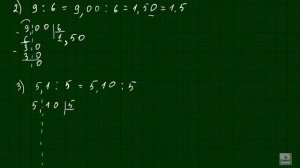 2) 9 : 6 = 9,00 : 6 = 1,50 = 1,5
- 9,00 | 6
6 1,50
- 3 0
3 0
0
3) 5,1 : 5 = 5,10 : 5
5,10 | 5